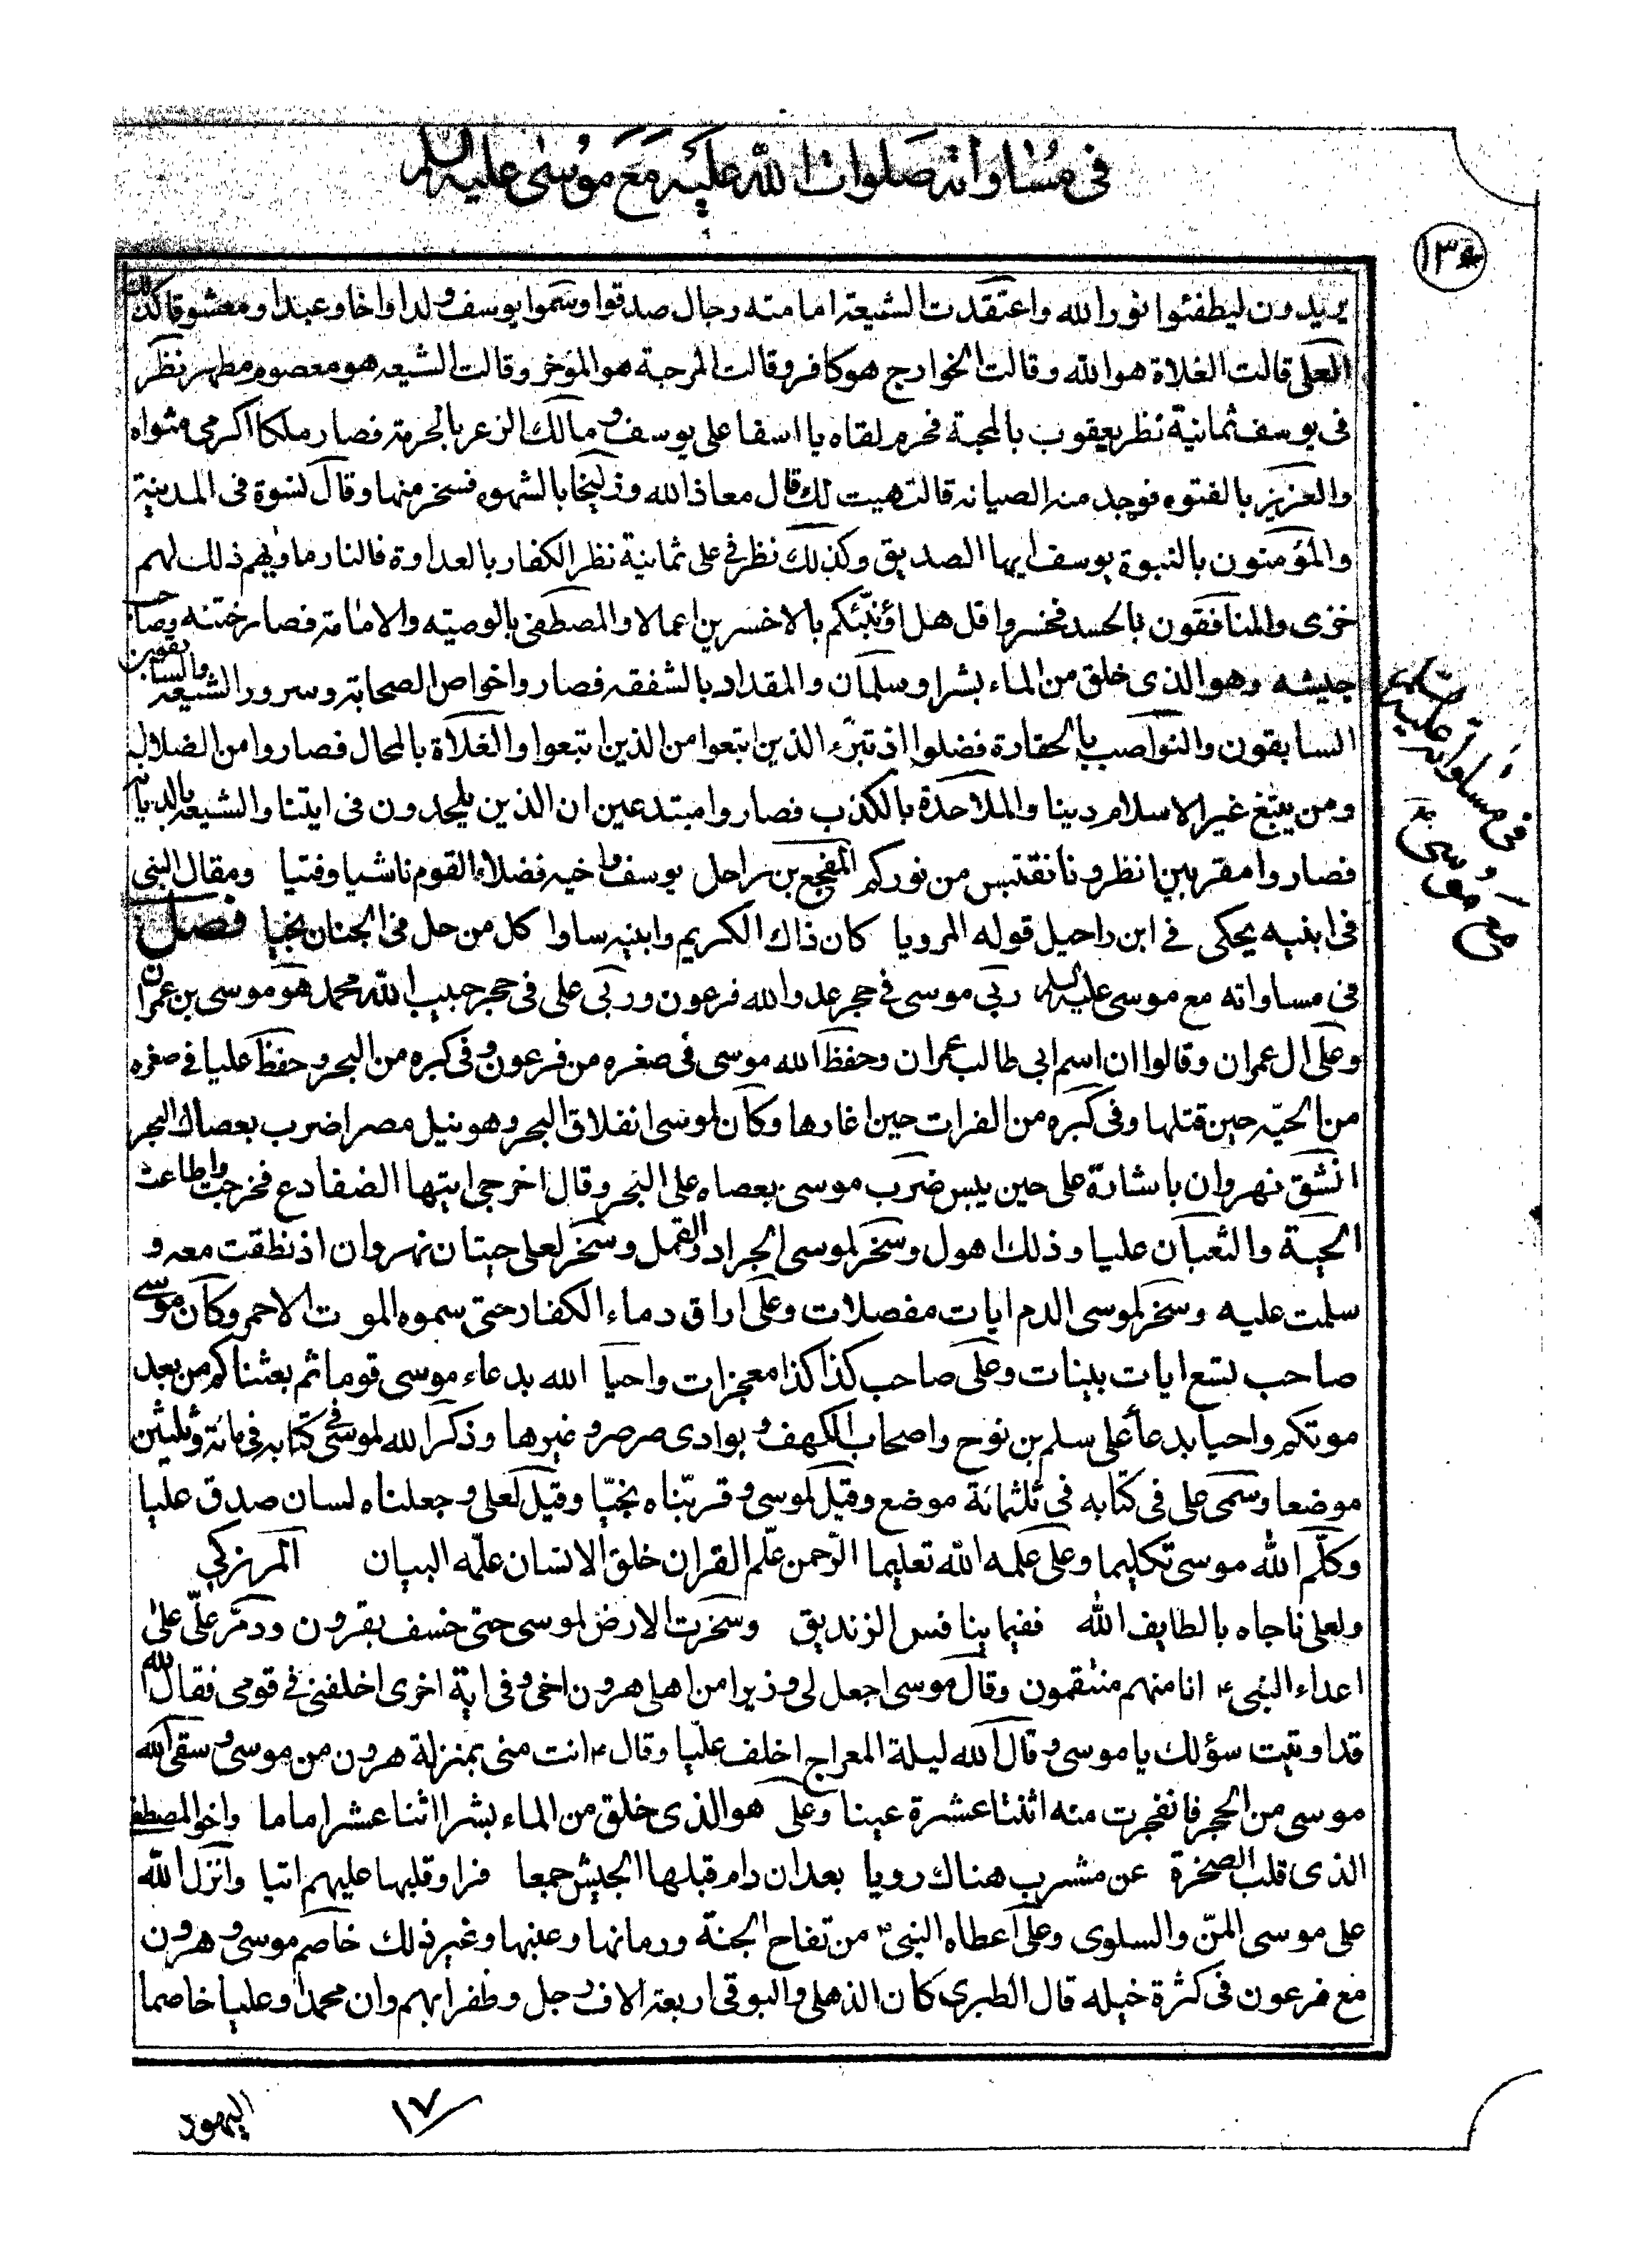 في مساواته صلوات الله عليه مع موسى عليه السلام
يريدون ليطفئوا نور الله واعتقدت الشيعة امامته رجال صدقوا وسموا يوسف ولدا واخا وعبدا ومعشوقا كذلك
لعلى قالت الغلاة هو الله وقالت الخوارج هو كافر وقالت المرجئة هو المؤخر وقالت الشيعه هو معصوم مطهر نظر
في يوسف ثمانية نظر يعقوب بالمحبة فحرم لقاه يا اسفا على يوسف ومالك الزعر بالحرمة فصار ملكا اكرمى مثواه
والعزيز بالفتوه فوجد منه الصيانه قالت هيت لك قال معاذ الله وزليخا بالشهوه فسخر منها وقال نسوة في المدينة
والمؤمنون بالنبوة يوسف ايها الصديق وكذلك نظر في على ثمانية نظر الكفار بالعداوة فالنار ماويهم ذلك لهم
خزى والمنافقون بالحسد فخسروا قل هل اؤنبئكم بالاخسرين اعمالا والمصطفى بالوصيه والامامة فصار ختنه وصاحب
جيشه وهو الذى خلق من الماء بشرا وسلمان والمقداد بالشفقه فصاروا خواص الصحابة وسرور الشيعه والسابقون
السابقون والنواصب بالحقارة فضلوا اذ تبرء الذين اتبعوا من الذين اتبعوا والغلاة بالمحال فصاروا من الضلاله
ومن يبتغ غير الاسلام دينا والملاحدة بالكذب فصاروا مبتدعين ان الذين يلحدون في ايتنا والشيعه بالديانة
فصاروا مقربين انظرونا نقتبس من نوركم المفجع بن راحل يوسف واخيه فضلاء القوم ناشيا وفتيا ومقال النبي
في ابنيه يحكى في ابن راحيل قوله المرويا كان ذاك الكريم وابنيه ساوا كل من حل في الجنان نجيا فصل
في مساواته مع موسى عليه السلام ربى موسى في حجر عدو الله فرعون وربى على في حجر حبيب الله محمد هو موسى بن عمران
وعلى ال عمران وقالوا ان اسم ابى طالب عمران وحفظ الله موسى في صغره من فرعون وفي كبره من البحر وحفظ عليا في صغره
من الحيّه حين قتلها وفي كبره من الفرات حين اغارها وكان لموسى انفلاق البحر وهو نيل مصر اضرب بعصاك البحر
انشق نهروان باشارة على حين يبس ضرب موسى بعصاه على البحر وقال اخرجى ايتها الضفادع فخرجت واطاعت
الحية والثعبان عليا وذلك اهول وسخر لموسى الجراد والقمل وسخر لعلى حيتان نهروان اذ نطقت معه و
سلمت عليه وسخر لموسى الدم ايات مفصلات وعلى اراق دماء الكفار حتى سموه الموت الاحمر وكان موسى
صاحب تسع ايات بينات وعلى صاحب كذا كذا معجزات واحيا الله بدعاء موسى قوما ثم بعثناكم من بعد
موتكم واحيا بدعا على سلم بن نوح واصحاب الكهف و بوادى صرصر وغيرها وذكر الله لموسى في كتابه في مائة وثلثين
موضعا وسمى على في كتابه في ثلثمائة موضع وقيل لموسى وقربناه نجيّا وقيل لعلى وجعلناه لسان صدق عليا
وكلّم الله موسى تكليما وعلى علمه الله تعليما الرّحمن علّم القران خلق الانسان علّمه البيان المرزكي
ولعلى ناجاه بالطايف الله ففيما ينافس الزنديق وسخرت الارض لموسى حتى خسف بقرون ودمّر علّى على
اعداء النبي ٤ انا منهم منتقمون وقال موسى اجعل لى وزيرا من اهلى هرون اخى وفى اية اخرى اخلفنى في قومى فقال الله
قد اوتيت سؤلك يا موسى وقال الله ليلة المعراج اخلف عليّا وقال ٤ انت منى بمنزلة هرون من موسى وسقى الله
موسى من الحجر فانفجرت منه اثنتا عشرة عينا وعلى هو الذى خلق من الماء بشرا اثنا عشر اماما واخو المصطفى
الذى قلب الصخرة عن مشرب هناك رويا بعد ان رام قبلها الجيش جمعا فراو قلبها عليهم اتيا وانزل الله
على موسى المنّ والسلوى وعلى اعطاه النبي ٤ من تفاح الجنة ورمانها وعنبها وغير ذلك خاصم موسى وهرون
مع فرعون في كثرة خيله قال الطبرى كان الذهلى والبوقى اربعة الاف رجل وظفرا بهم وان محمدا وعليا خاصما
في مساواته عليه السلام مع موسى
اليهود
١٧